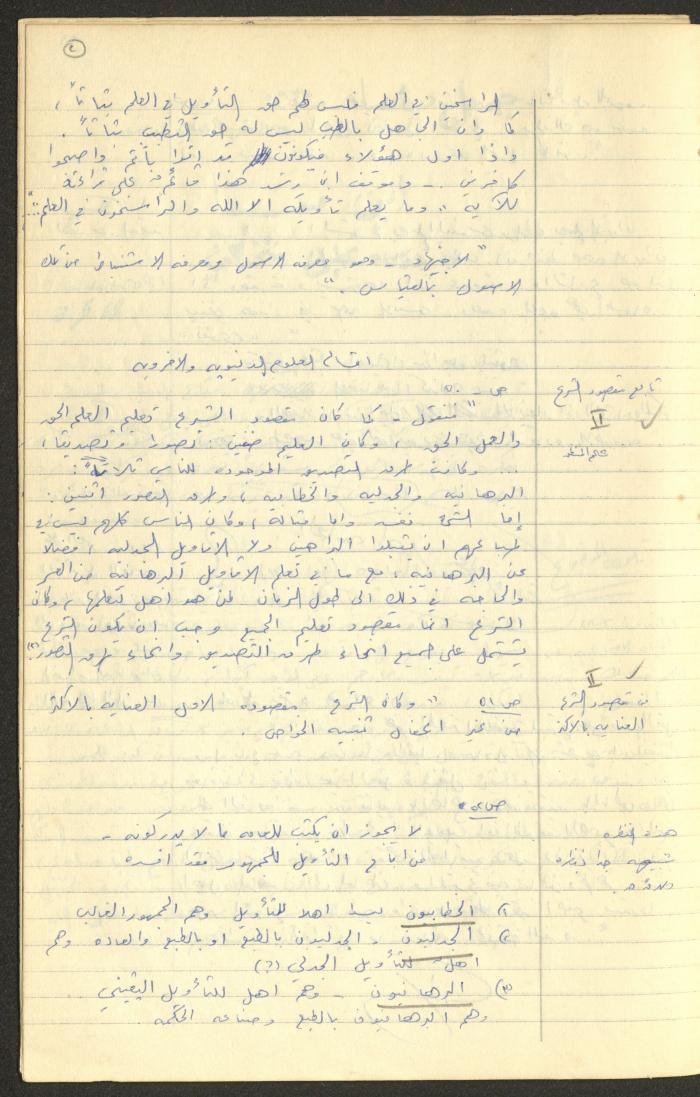 ٢
الراسخين في العلم فليس لهم حق التأويل في العلم بتاتاً ،
كما وان الجاهل بالطب ليس له حق التطبيب بتاتاً .
واذا اول هؤلاء فيكونون قد اتوا باثم واصبحوا
كافرين - وموقف ابن رشد هذا قائم على قراءته
للآية " وما يعلم تأويله الا الله والراسخون في العلم ..."
" الاجتهاد - وهو معرفه الاصول ومعرفه الاستنباط من تلك
الاصول بالقياس . "
اقسام العلوم الدنيويه والاخرويه
تابع مقصود الشرع
II
ص - ٥٠
" فنقول - لما كان مقصود الشرع تعليم العلم الحق
والعمل الحق ، وكان التعليم صنفين : تصورا وتصديقا ،
... وكانت طرق التصديق الموجوده للناس ثلاثة :
البرهانيه والجدليه والخطابيه ، وطرق التصور اثنتين :
إما الشيء نفسه واما مثاله ، وكان الناس كلهم ليس في
طباعهم ان يقبلوا البراهين ولا الاقاويل الجدليه ، فضلا
عن البرهانيه ، مع ما في تعلم الاقاويل البرهانية من العسر
والحاجه في ذلك الى طول الزمان لمن هو اهل لتعلمها ، وكان
الشرع انما مقصوده تعليم الجميع وجب ان يكون الشرع
يشتمل على جميع انحاء طرق التصديق وانحاء طرق التصور "
II
من مقصود الشرع
العنايه بالاكثر
ص ٥١ " وكان الشرع مقصوده الاول العنايه بالاكثر
من غير اغفال تنبيه الخواص .
ص ٥٢
هذه النظره
شبيهه جدا بنظره
لا يجوز ان يكتب للعامه ما لا يدركونه -
من اباح التأويل للجمهور فقد افسده
١) الخطابيون ليسوا اهلا للتأويل وهم الجمهور الغالب
٢) الجدليون - الجدليون بالطبع او بالطبع والعاده وهم
اهل للتأويل الجدلي (؟)
٣) البرهانيون - وهم اهل للتأويل اليقيني
وهم البرهانيون بالطبع وصناعه الحكمه